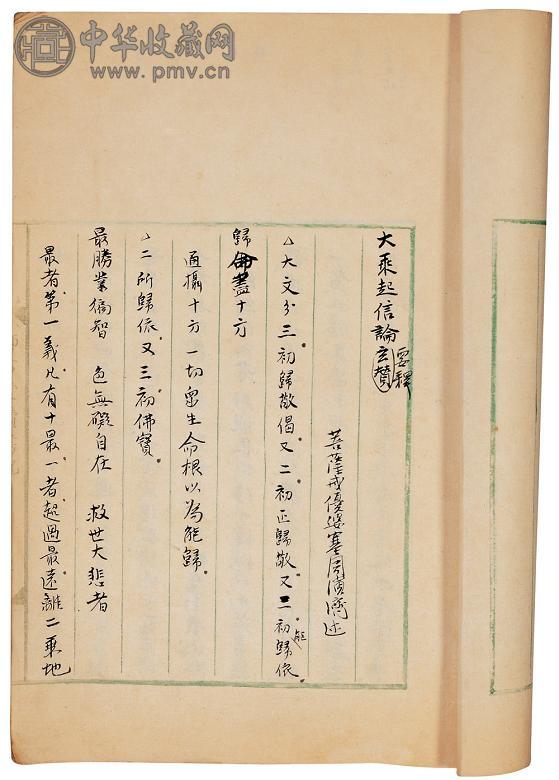 中华收藏网
www.pmv.cn
大乘起信論玄贊
要釋
菩薩戒優婆塞周演濟述
△大文分三初歸敬偈又二初正歸敬又三初能歸依
歸命盡十方
通攝十方一切眾生命根以為能歸
△二所歸依又三初佛寶
最勝業徧智 色無礙自在 救世大悲者
最者第一義凡有十最一者超過最遠離二乘地